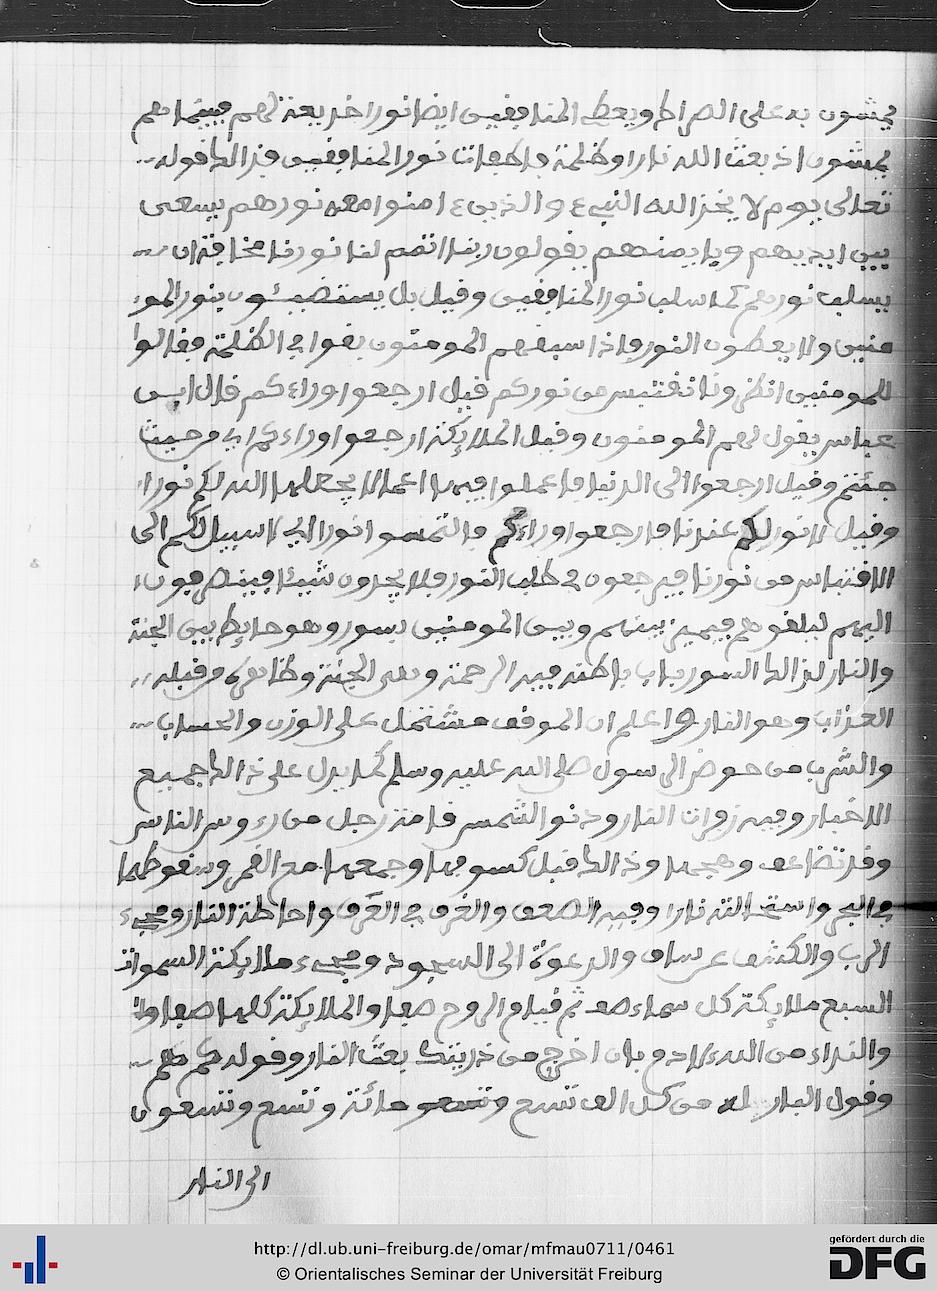 يمشون به على الصراط ويعطى المنافقين ايضا نورا خديعة لهم فبينما هم
يمشون اذ بعث الله نارا وظلمة فاطفات نور المنافقين فذالك قوله
تعالى يوم لا يخز الله النبيء والذين ءامنوا معه نورهم يسعى
بين ايديهم وبايمنهم يقولون ربنا اتمم لنا نورنا مخافة ان
يسلب نورهم كما سلب نور المنافقين وقيل بل يستضيئون بنور المو
منين ولا يعطون النور فاذا سبقهم المومنون بقوا في الظلمة فقالوا
للمومنين انظرونا نقتبس من نوركم قيل ارجعوا وراءكم قال ابن
عباس يقول لهم المومنون وقيل الملايكة ارجعوا وراءكم اي من حيث
جئتم وقيل ارجعوا الى الدنيا فاعملوا فيها اعمالا يجعلها الله لكم نورا
وقيل لا نور لكم عندنا فارجعوا وراءكم فالتمسوا نورا اي لا سبيل لكم الى
الاقتباس من نورنا فيرجعون في طلب النور فلا يجدون شيئا فينصرفون
اليهم ليلقوهم فيميز بينهم وبين المومنين بسور وهو حايط بين الجنة
والنار لذالك السور باب باطنه فيه الرحمة وهى الجنة وظاهره من قبله
العذاب وهو النار اعلم ان الموقف مشتمل على الوزن والحساب
والشرب من حوض الرسول صلى الله عليه وسلم كما يدل على ذالك جميع
الاخبار وفيه زفرات النار ودنو الشمس قامة رجل من رءوس الناس
وقد تضاعف وهجها وذالك قبل كسوفها وجمعها مع القمر وسقوطهما
في البحر واستحالته نارا وفيه الصعف والغرق في العرق واحاطة النار ومجيء
الرب والكشف عن ساق والدعوة الى السجود ومجيء ملايكة السموات
السبع ملايكة كل سماء صف ثم قيام الروح صفا والملايكة كلها صفا
والنداء من الله لادم بان اخرج من ذريتك بعث النار وقوله كم هم
وقول البار له من كل الف تسع مائة وتسع وتسعون
الى النار
http://dl.ub.uni-freiburg.de/omar/mfmau0711/0461
© Orientalisches Seminar der Universität Freiburg
gefördert durch die
DFG